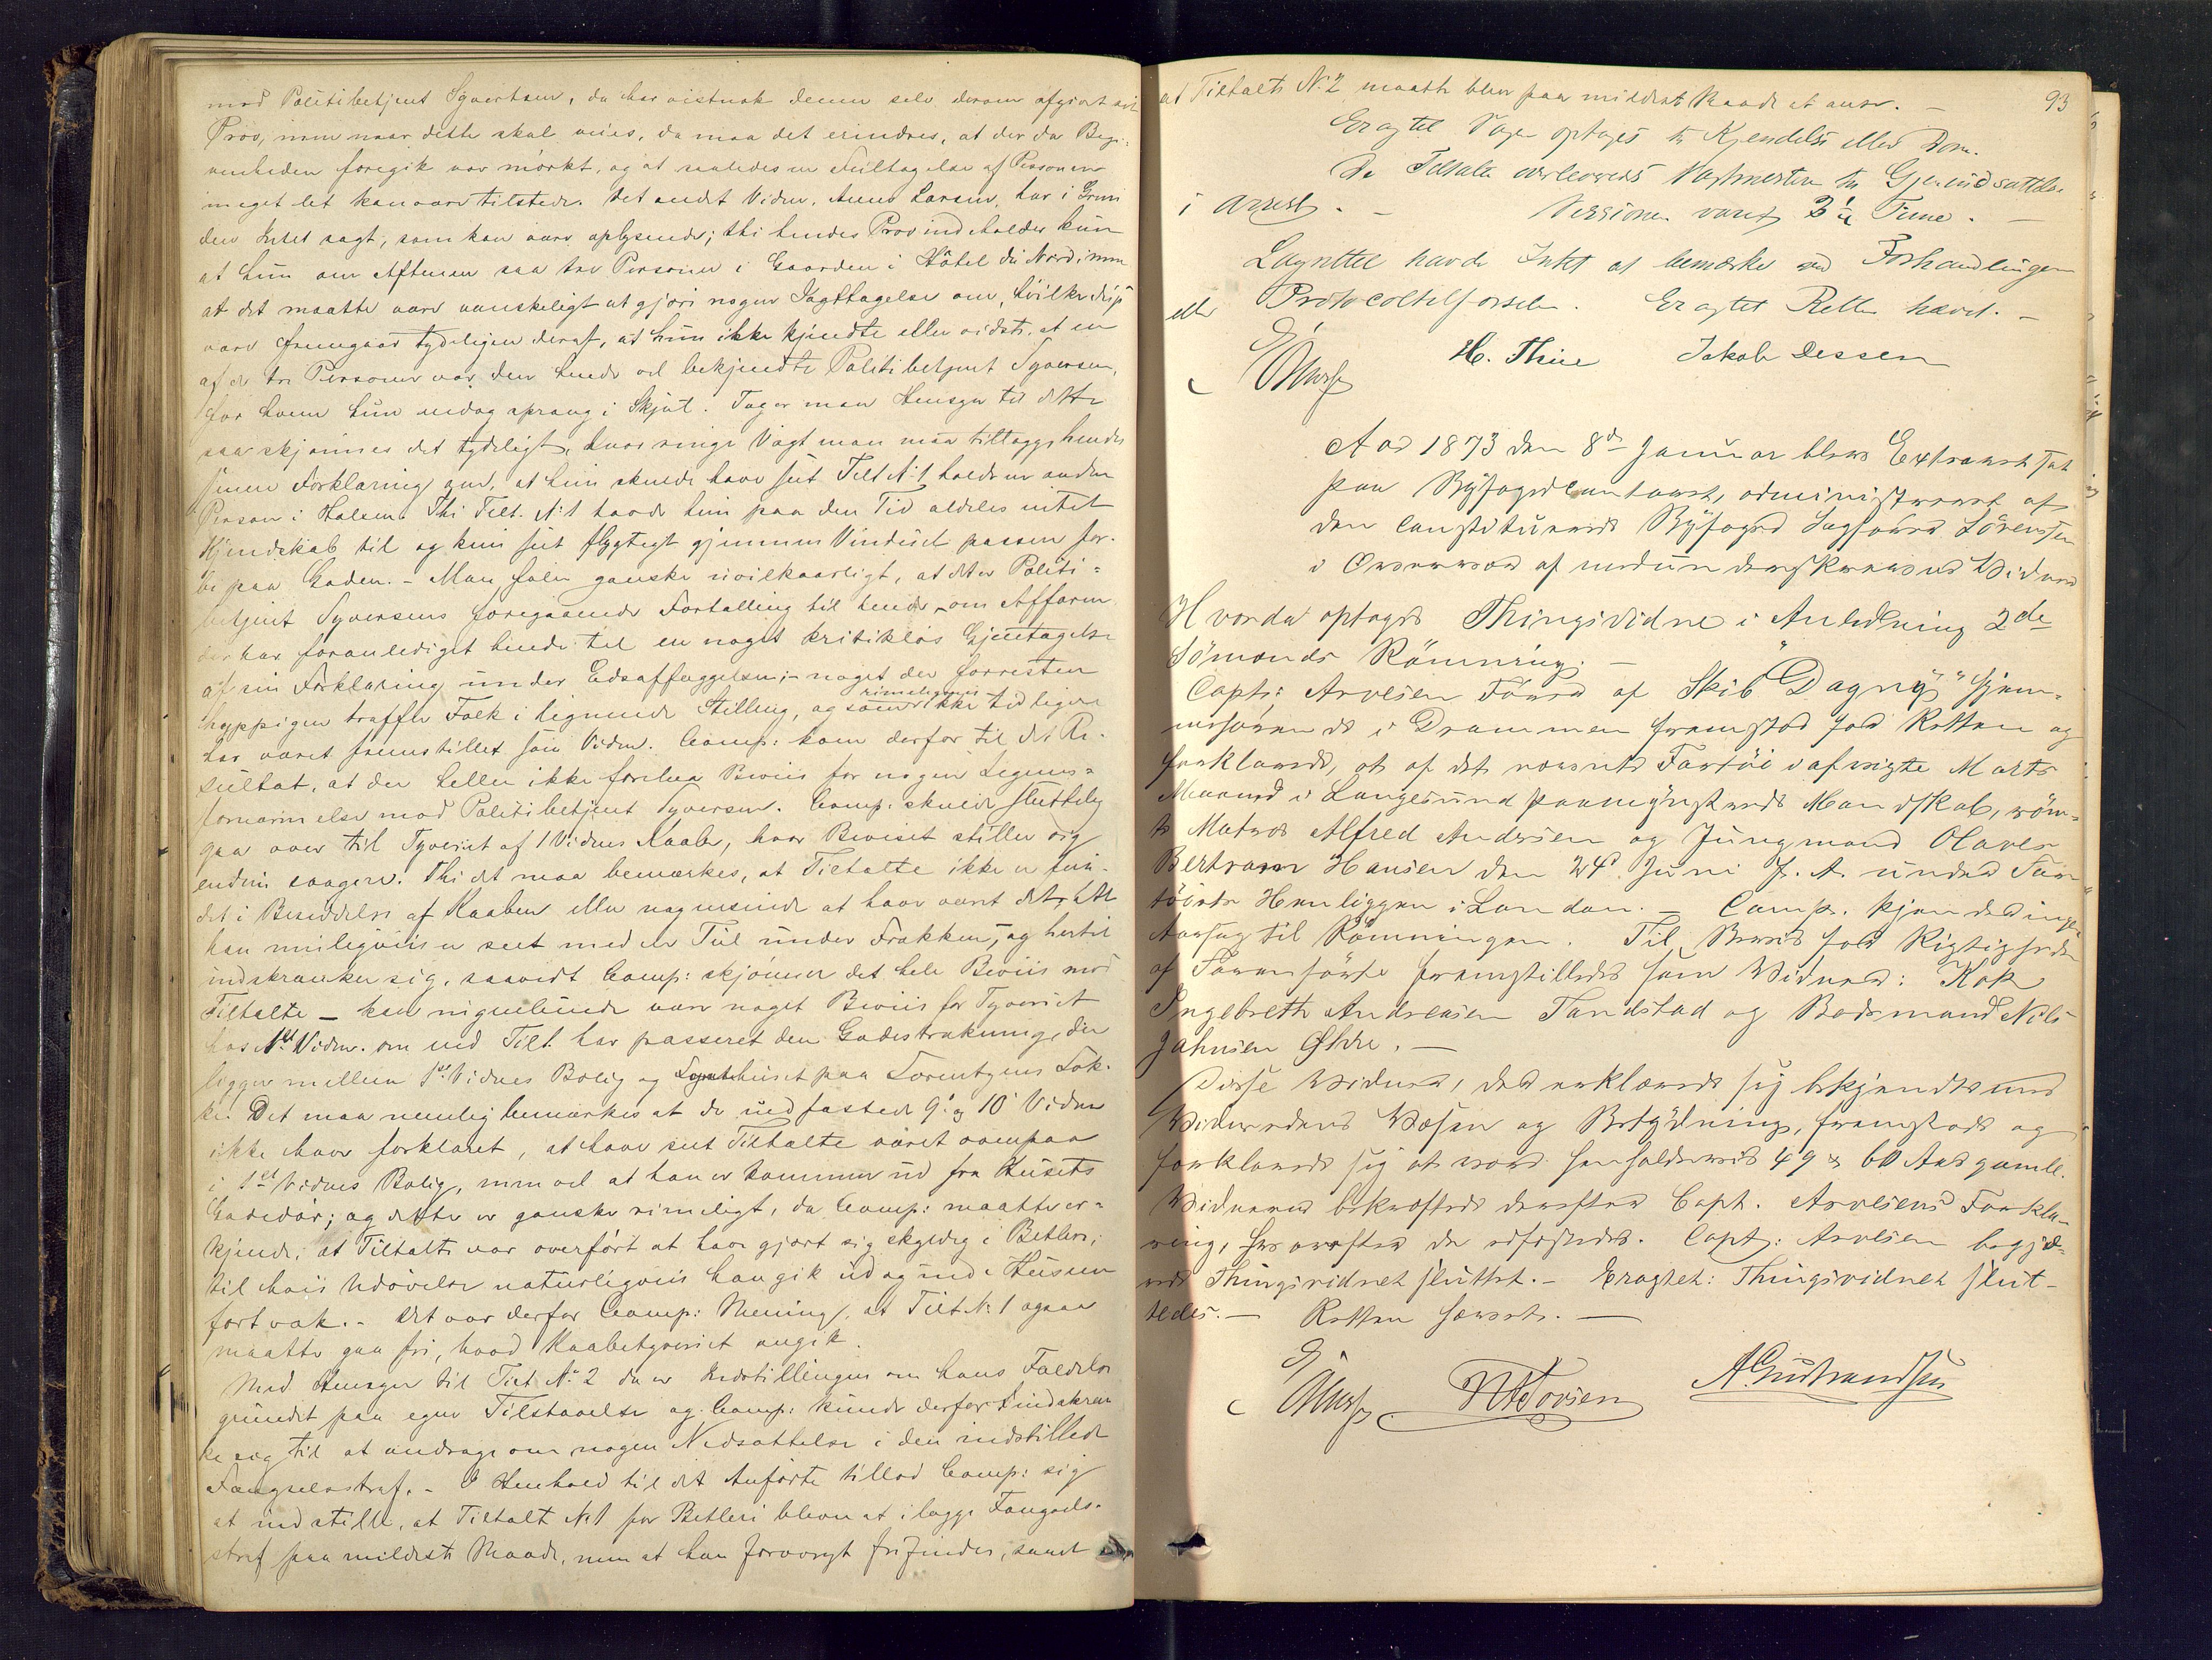 med Politibetjent Syvertsen, da har vistnok denne selv derom afgivet sit
Prov, men naar dette skal veies, da maa det erindres, at der da Begi-
venheden foregik var mørkt, og at saaledes en Feiltagelse af Personen
meget let kan være tilstede. Det andet Vidne, Anne Larsen, har i Grun
den Intet sagt, som kan være oplysende; thi hendes Prov indeholder kun
at hun om Aftenen saa tre Personer i Gaarden i Hôtel du Nord; men
at det maatte være vanskeligt at gjøre nogen Iagttagelse om, hvilke disse
vare fremgaar tydeligen deraf, at hun ikke kjendte eller vidste, at en
af de tre Personer var den hende vel bekjendte Politibetjent Syversen,
for hvem hun endog sprang i Skjul. Tager man Hensyn til dette
saa skjønnes det tydeligt, hvor ringe Vægt man maa tillægge hendes
senere Forklaring om, at hun skulde have seet Tilt. N: 1 holde en anden
Person i Halsen. Thi Tilt. N: 1 havde hun paa den Tid aldeles intet
Kjendskab til og kun seet flygtigt gjennem Vinduet passere for-
bi paa Gaden. - Man føler ganske uvilkaarligt, at det er Politi-
betjent Syversens foregaaende Fortælling til hende om Affæren
der har foranlediget hende til en noget kritikløs Gjentagelse
af sin Forklaring under Edsaflæggelsen; - noget der forresten
hyppigen træffer Folk i lignende Stilling, og som rimeligvis ikke tidligere
har været fremstillet som Vidne. Comp: kom derfor til det Re-
sultat, at der heller ikke forelaa Beviis for nogen Legems-
fornærmelse mod Politibetjent Syversen. Comp: skulde sluttelig
gaa over til Tyveriet af 1 Vidnes Kaabe, hvor Beviset stiller sig
endnu svagere. Thi det maa bemærkes, at Tiltalte ikke er fun-
det i Besiddelse af Kaaben eller nogensinde at have været det; at
han muligviis er seet med en Tul under Frakken, og hertil
indskrænker sig, saavidt Comp: skjønner det hele Beviis mod
Tiltalte - kan ingenlunde være noget Beviis for Tyveriet
hos 1ste Vidne. om end Tilt. har passeret den Gadestrækning, der
ligger mellem 1ste Vidnes Bolig og Sprøitehuset paa Lorentzens Løk-
ke. Det maa nemlig bemærkes at de indfastede 9' og 10' Vidne
ikke have forklaret, at have seet Tiltalte været ovenpaa
i 1ste Vidnes Bolig, men vel at han er kommen ud fra Husets
Gadedør; og dette er ganske rimeligt, da Comp: maatte er-
kjende, at Tiltalte var overført at have gjort sig skyldig i Betleri,
til hvis Udøvelse naturligviis han gik ud og ind i Husene
fort væk. - Det var derfor Comp: Mening, at Tilt. N: 1 ogsaa
maatte gaa fri, hvad Kaabetyveriet angik.
Med Hensyn til Tilt. N: 2 da er Indstillingen om hans Fældelse
grundet paa egen Tilstaaelse og Comp: kunde derfor indskræn
ke sig til at andrage om nogen Nedsættelse i den indstillede
Fængselsstraf. - I Henhold til det Anførte tillod Comp: sig
at indstille, at Tiltalt N: 1 for Betleri bliver at ilægge Fængsels-
straf paa mildeste Maade, men at han forøvrigt frifindes, samt
93
at Tiltalte N: 2 maatte blive paa mildeste Maade at anse. -
Eragtet Sagen optages til Kjendelse eller Dom.
De Tiltalte overleveredes Vagtmesteren til Gjenindsættelse
i Arrest. - Sessionen varet 3½ Time. -
Lagrettet havde Intet at bemærke ved Forhandlingen
eller Protocoltilførselen. Eragtet Retten hævet. -
H. Thue Jakob Dessen
Aar 1873 den 8de Januar blev Extraret sat
paa Byfogedcontoret, administreret af
den constituerede Byfoged Sagfører Sörenssen
i Overværelse af nedunderskrevne Vidner
Hvorda optoges Thingsvidne i Anledning 2de
Sömænds Römning. -
Capt: Arvesen Förer af Skib "Dagny" hjem-
mehørende i Drammen fremstod for Retten og
forklarede, at af det nævnte Fartöi i afvigte Marts
Maaned i Langesund paamönstrede Mandskab, röm-
te Matros Alfred Andersen og Jungmand Olaves
Bertram Hansen den 24de Juni f. A. under Far-
töiets Henliggen i London. - Comp. kjender ingen
Aarsag til Römningen. Til Beviis for Rigtigheden
af Foranförte fremstilledes som Vidner: Kok
Ingebreth Andreasen Tandstad og Baadsmand Nils
Johnsen Øhre. -
Disse Vidner, der erklærede sig bekjendte med
Vidneedens Væsen og Betydning, fremstode og
forklarede sig at være henholdsvis 49 & 60 Aar gamle.
Vidnerne bekræftede derefter Capt. Arvesens Forkla-
ring, hvorefter de edfæstedes. Capt: Arvesen begjæ-
rede Thingsvidnet sluttet. - Eragtet: Thingsvidnet slut-
tedes. - Retten hævet. -
A Gulbrandsen